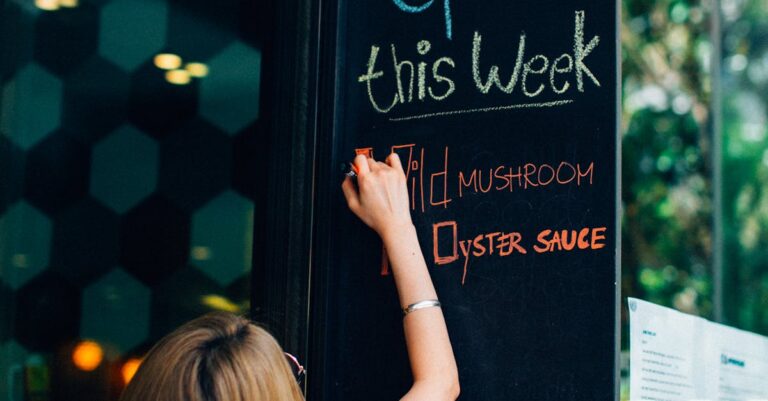 this Week
Wild MUSHROOM
Oyster SAUCE